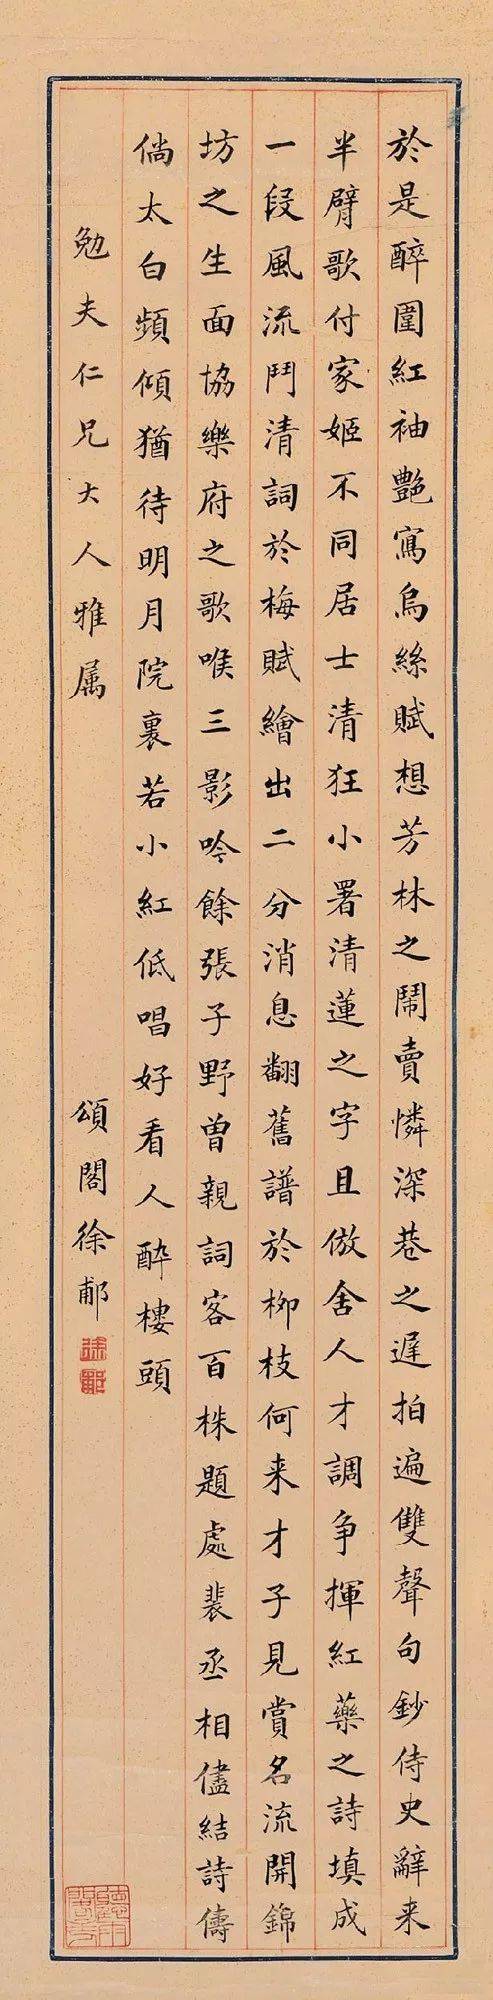 於是醉圍紅袖艷寫烏絲賦想芳林之鬧賣憐深巷之遲拍遍雙聲句鈔侍史辭来
半臂歌付家姬不同居士清狂小署清蓮之字且倣舍人才調争揮紅藥之詩填成
一段風流鬥清詞於梅賦繪出二分消息翻舊譜於柳枝何来才子見賞名流開錦
坊之生面協樂府之歌喉三影吟餘張子野曽親詞客百株題處裴丞相儘結詩儔
倘太白頻傾猶待明月院裏若小紅低唱好看人酔樓頭
勉夫仁兄大人雅属
頌閣徐郙